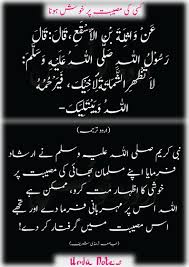 کسی کی مصیبت پر خوش ہونا
عَنْ وَاثِلَةَ بْنِ الْأَسْقَعِ، قَالَ: قَالَ
رَسُوْلُ اللهِ صَلَّى اللهُ عَلَيْهِ وَسَلَّمَ:
لَا تُظْهِرِ الشَّمَاتَةَ لِأَخِيْكَ، فَيَرْحَمُهُ
اللهُ وَيَبْتَلِيْكَ-
(اردو ترجمہ)
نبی کریم صلی اللہ علیہ وسلم نے ارشاد
فرمایا اپنے مسلمان بھائی کی مصیبت پر
خوشی کا اظہار مت کرو، ممکن ہے
اللہ اس پر مہربانی فرما دے اور تجھے
اس مصیبت میں گرفتار کر دے!
Urdu Notes